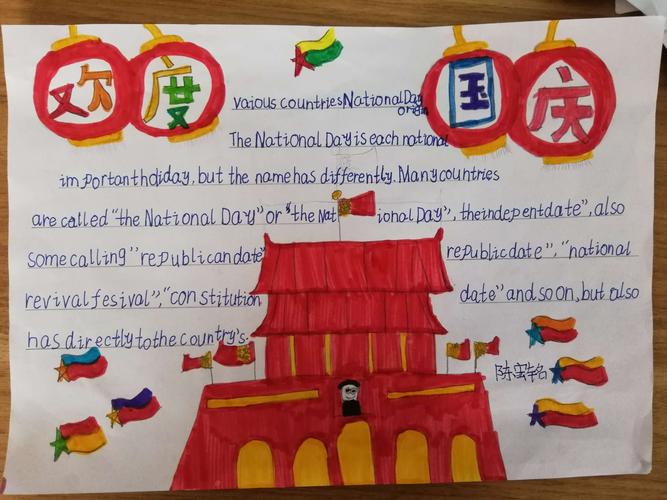 欢度 国庆
vaious countries National Day
origin
The National Day is each national
important hdiday, but the name has differently. Many countries
are called "the National Day" or "the Nat ional Day", the indepent date", also
some calling "republican date" republic date", "national
revival fesival", "constitution date" and so on, but also
has directly to the country's.